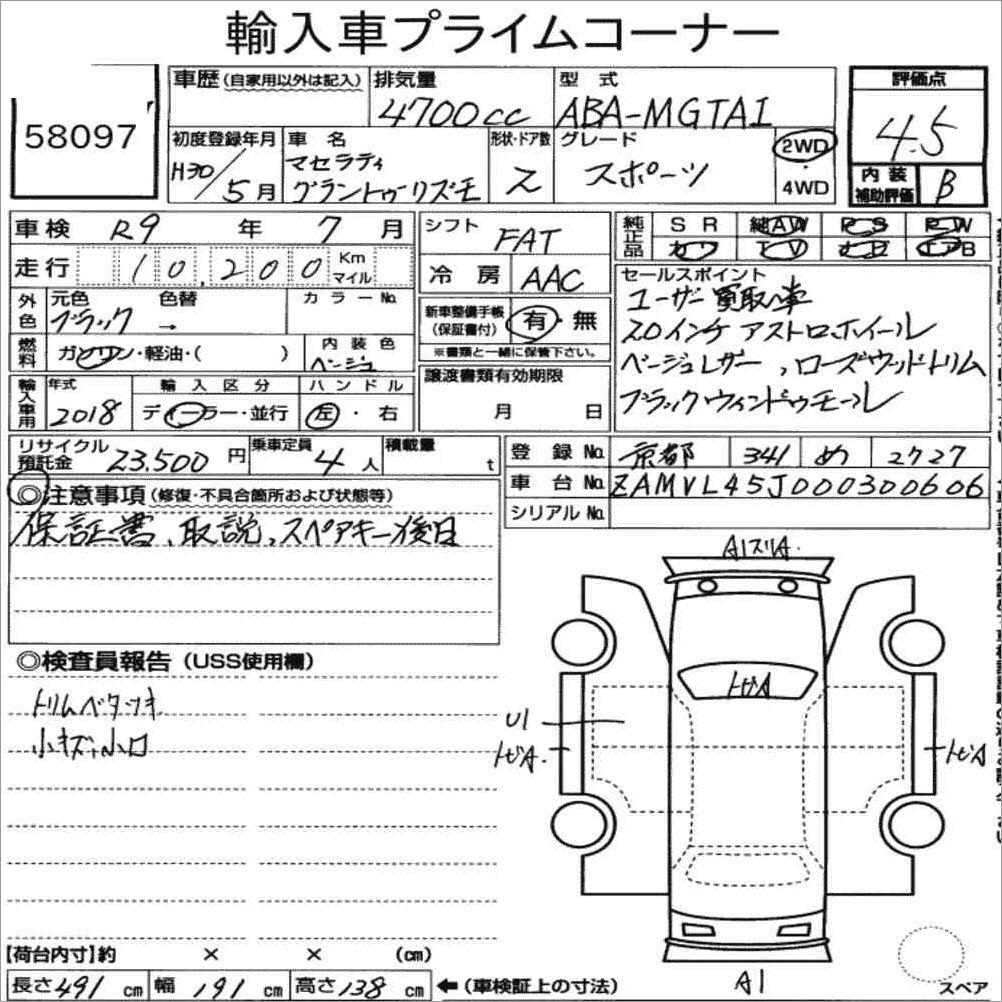 輸入車プライムコーナー
58097
車歴 (自家用以外は記入)
排気量
4700cc
型式
ABA-MGTA1
評価点
4.5
内装補助評価 B
初度登録年月
H30/5月
車名
マセラティ
グラントゥーリズモ
形状・ドア数
2
グレード
スポーツ
2WD
・
4WD
車検 R9年 7月
走行 10,200 Km マイル
外色 元色 色替 カラーNo.
ブラック →
燃料 ガソリン・軽油・( )
内装色
ベージュ
輸入車用 年式 輸入区分 ハンドル
2018 ディーラー・並行 左・右
シフト FAT
冷房 AAC
新車整備手帳(保証書付) 有・無
※書類と一緒に保管下さい。
譲渡書類有効期限
月 日
純正品 SR 純AW PS PW
カワ TV ナビ エアB
セールスポイント
ユーザー買取車
20インチアストロホイール
ベージュレザー、ローズウッドトリム
ブラックウィンドゥモール
リサイクル預託金 23,500円
乗車定員 4人
積載量 t
登録No. 京都 341 め 2727
車台No. ZAMVL45J000300606
シリアルNo.
◎注意事項 (修復・不具合箇所および状態等)
保証書、取説、スペアキー後日
◎検査員報告 (USS使用欄)
トリムベタつき
小キズ、小凹
A1スリA.
トビA
U1
トビA.
トビA
A1
スペア
【荷台内寸】約 × × (cm)
長さ491cm 幅191cm 高さ138cm ←(車検証上の寸法)